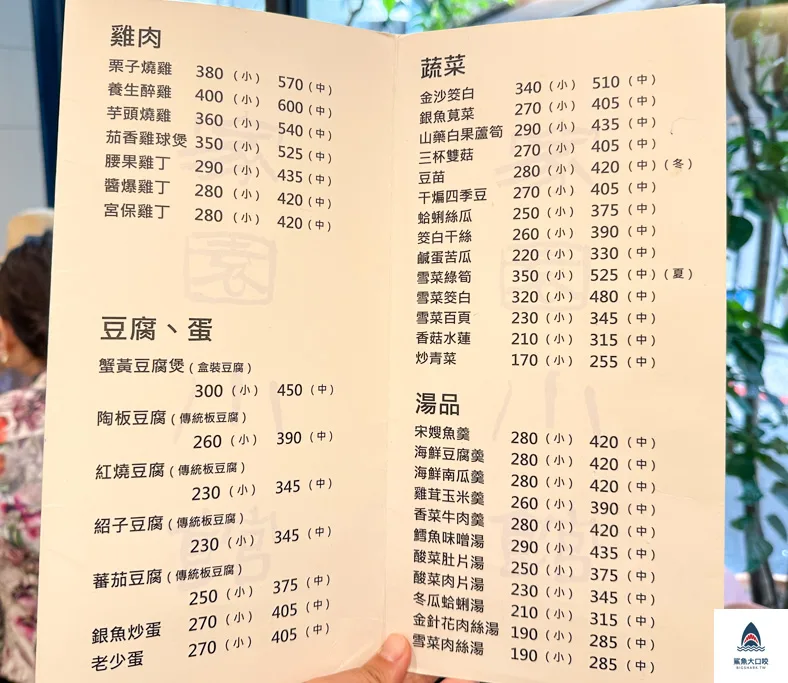 雞肉
栗子燒雞 380（小） 570（中）
養生醉雞 400（小） 600（中）
芋頭燒雞 360（小） 540（中）
茄香雞球煲 350（小） 525（中）
腰果雞丁 290（小） 435（中）
醬爆雞丁 280（小） 420（中）
宮保雞丁 280（小） 420（中）
豆腐、蛋
蟹黃豆腐煲（盒裝豆腐）
300（小） 450（中）
陶板豆腐（傳統板豆腐）
260（小） 390（中）
紅燒豆腐（傳統板豆腐）
230（小） 345（中）
紹子豆腐（傳統板豆腐）
230（小） 345（中）
蕃茄豆腐（傳統板豆腐）
250（小） 375（中）
銀魚炒蛋 270（小） 405（中）
老少蛋 270（小） 405（中）
蔬菜
金沙筊白 340（小） 510（中）
銀魚莧菜 270（小） 405（中）
山藥白果蘆筍 290（小） 435（中）
三杯雙菇 270（小） 405（中）
豆苗 280（小） 420（中）（冬）
干煸四季豆 270（小） 405（中）
蛤蜊絲瓜 250（小） 375（中）
筊白干絲 260（小） 390（中）
鹹蛋苦瓜 220（小） 330（中）
雪菜綠筍 350（小） 525（中）（夏）
雪菜筊白 320（小） 480（中）
雪菜百頁 230（小） 345（中）
香菇水蓮 210（小） 315（中）
炒青菜 170（小） 255（中）
湯品
宋嫂魚羹 280（小） 420（中）
海鮮豆腐羹 280（小） 420（中）
海鮮南瓜羹 280（小） 420（中）
雞茸玉米羹 260（小） 390（中）
香菜牛肉羹 280（小） 420（中）
鱈魚味噌湯 290（小） 435（中）
酸菜肚片湯 250（小） 375（中）
酸菜肉片湯 230（小） 345（中）
冬瓜蛤蜊湯 210（小） 315（中）
金針花肉絲湯 190（小） 285（中）
雪菜肉絲湯 190（小） 285（中）
家園小館
家園小館
鯊魚大口咬
BIGSHARK.TW